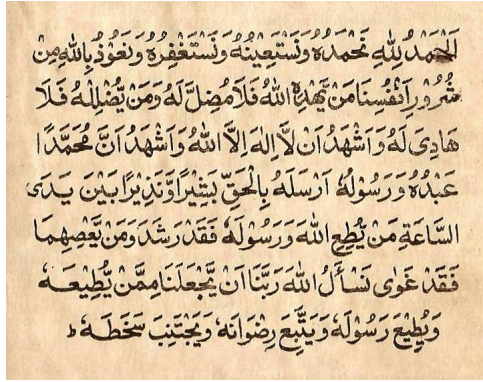 اَلْحَمْدُ لِلّٰهِ نَحْمَدُهٗ وَنَسْتَعِيْنُهٗ وَنَسْتَغْفِرُهٗ وَنَعُوْذُ بِاللّٰهِ مِنْ
شُرُوْرِ اَنْفُسِنَا مَنْ يَّهْدِهِ اللّٰهُ فَلَا مُضِلَّ لَهٗ وَمَنْ يُّضْلِلْهُ فَلَا
هَادِىَ لَهٗ وَاَشْهَدُ اَنْ لَّا اِلٰهَ اِلَّا اللّٰهُ وَاَشْهَدُ اَنَّ مُحَمَّدًا
عَبْدُهٗ وَرَسُوْلُهٗ اَرْسَلَهٗ بِالْحَقِّ بَشِيْرًا وَّنَذِيْرًا بَيْنَ يَدَىِ
السَّاعَةِ مَنْ يُّطِعِ اللّٰهَ وَرَسُوْلَهٗ فَقَدْ رَشَدَ وَمَنْ يَّعْصِهِمَا
فَقَدْ غَوٰى نَسْأَلُ اللّٰهَ رَبَّنَا اَنْ يَّجْعَلَنَا مِمَّنْ يُّطِيْعُهٗ
وَيُطِيْعُ رَسُوْلَهٗ وَيَتَّبِعُ رِضْوَانَهٗ وَيَجْتَنِبُ سَخَطَهٗ ؕ